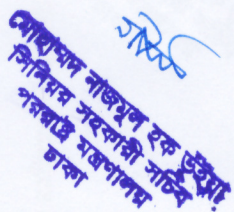 মোহাম্মদ নাজমুল হক ভূঁইয়া
সিনিয়র সহকারী সচিব
পররাষ্ট্র মন্ত্রণালয়
ঢাকা